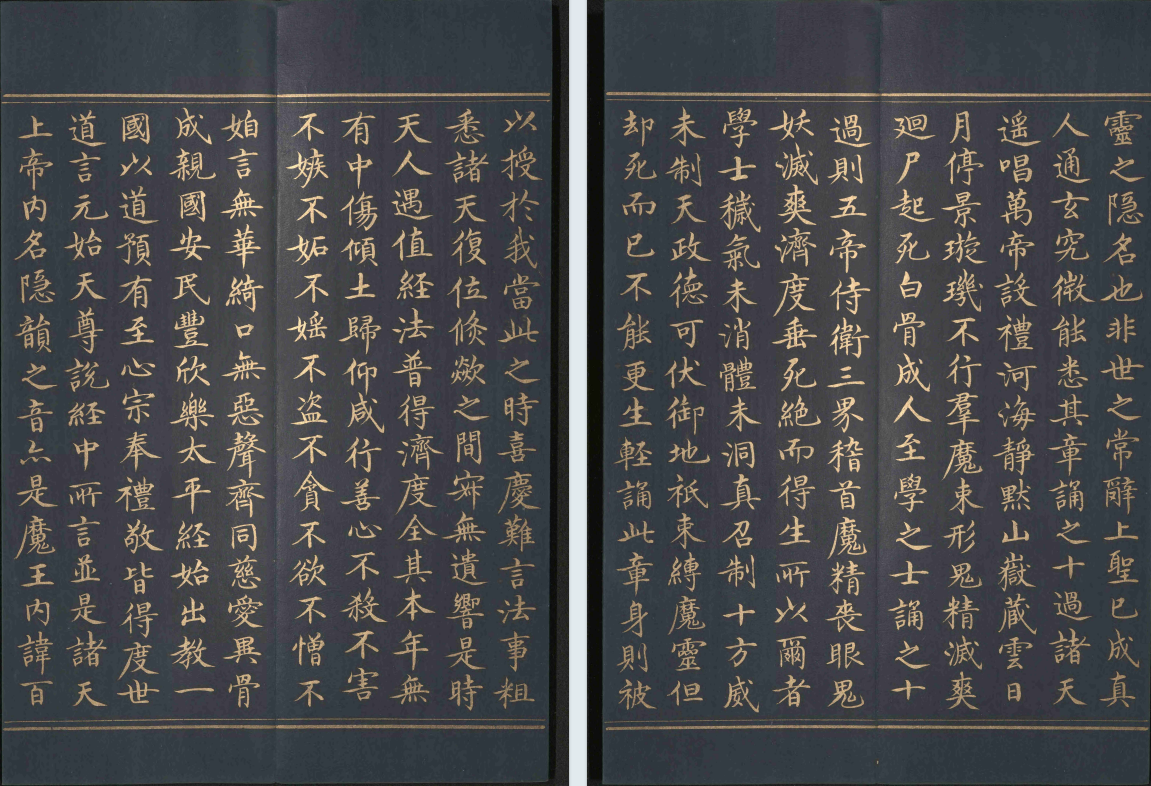 以授於我當此之時喜慶難言法事粗
悉諸天復位倏歘之間寂無遺響是時
天人遇值経法普得濟度全其本年無
有中傷傾土歸仰咸行善心不殺不害
不嫉不妬不婬不盗不貪不欲不憎不
㛿言無華綺口無惡聲齊同慈愛異骨
成親國安民豐欣樂太平経始出教一
國以道預有至心宗奉禮敬皆得度世
道言元始天尊說経中所言並是諸天
上帝内名隠韻之音亦是魔王内諱百
靈之隠名也非世之常辭上聖已成真
人通玄究微能悉其章誦之十過諸天
遥唱萬帝設禮河海靜默山嶽蔵雲日
月停景璇璣不行羣魔束形鬼精滅爽
廻尸起死白骨成人至學之士誦之十
過則五帝侍衛三界稽首魔精喪眼鬼
妖滅爽濟度垂死絶而得生所以爾者
學士穢氣未消體未洞真召制十方威
未制天政德可伏御地祇束縛魔靈但
却死而已不能更生軽誦此章身則被